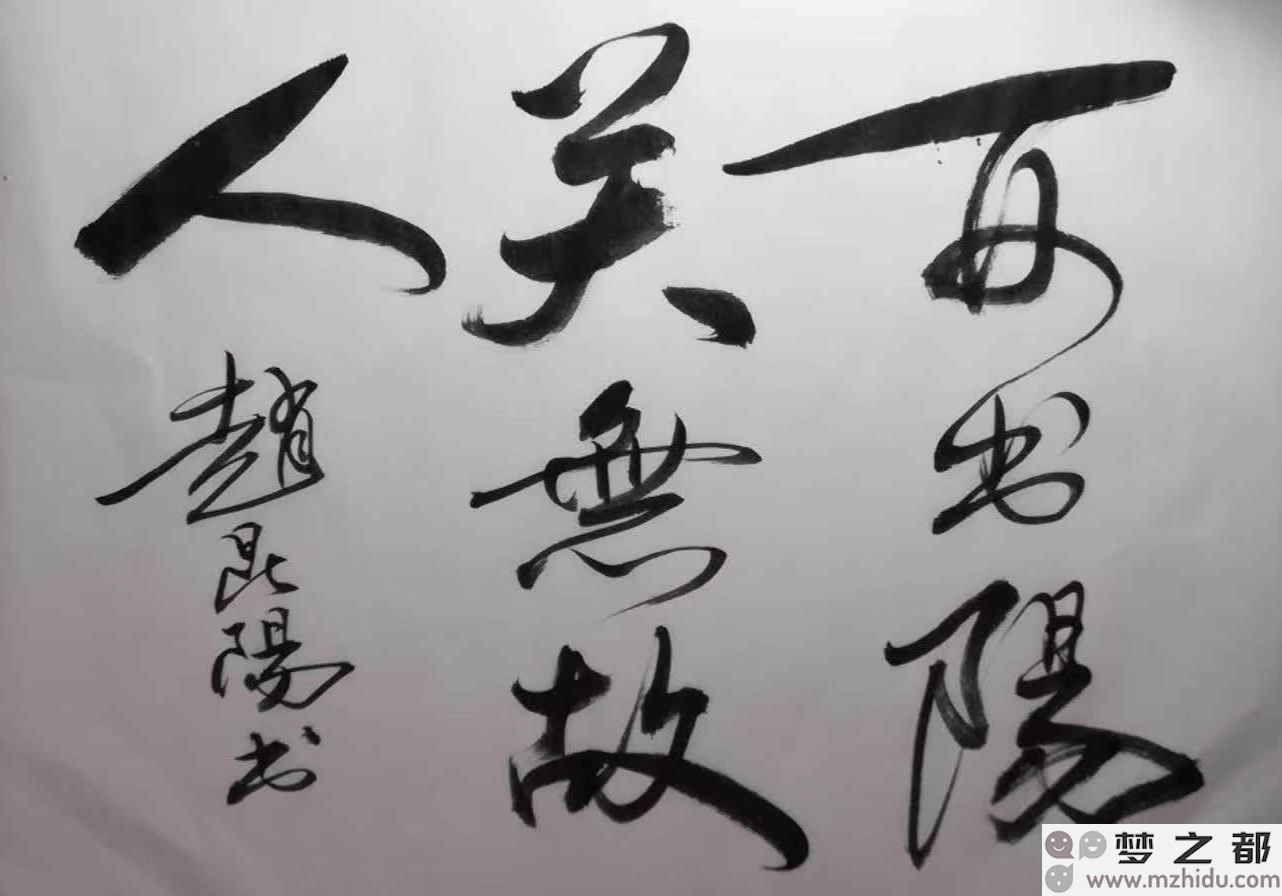 西出陽
关無故
人
趙昆陽书
梦之都
www.mzhidu.com